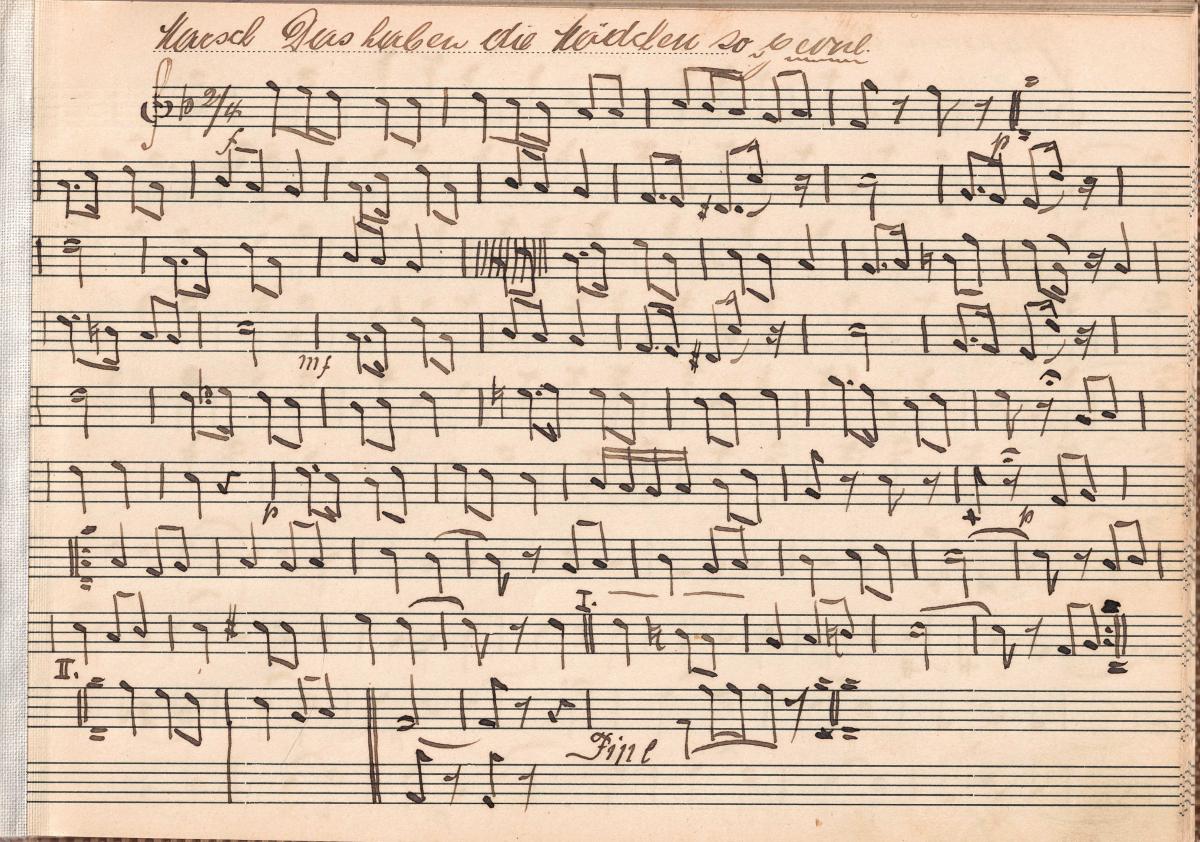 Marsch Das haben die Mädchen so gerne
2/4
f
p
mf
p
p
I.
II.
Fine